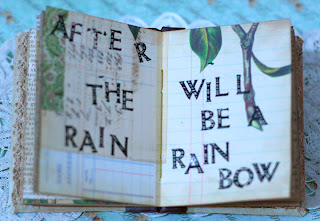 AFTER
THE
RAIN
WILL
BE A
RAIN
BOW